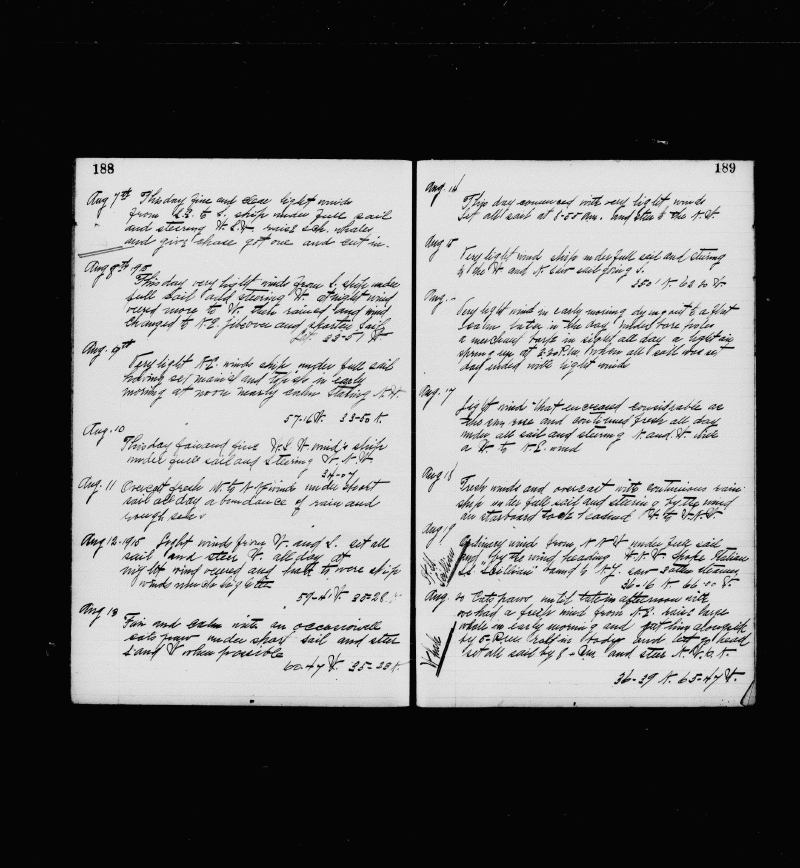 188
Aug 7th This day fine and clear light winds
from S.E. to S. ship under full sail
and steering W.S.W. raise sch. whales
and give chase got one and cut in.
Aug 8th
This day very light winds from S. ship under
full sail and steering W. at night wind
veered more to W. then raised and wind
changed to N.E. jibe over and sails
Lat. 33-51 N
Aug. 9th
Very light N.E. winds ship under full sail
having set main and in early
morning at noon nearly calm N.W.
57-16 W. 33-50 N.
Aug. 10
This day fair and fine W.S.W. winds ship
under full sail and steering N.W.
34-07
Aug. 11 Overcast fresh W. to N.W. winds under short
sail all day abundance of rain and
rough sea
Aug 12-1915 Light winds from W. and S. set all
sail and steer W. all day at
night wind veered and to wore ship
winds much lighter
59-41 W. 35-28 N
Aug 13 Fine and calm with an occasional
cats paw under short sail and steer
S and W when possible
60-47 W. 35-28 N
189
Aug. 14
This day commenced with very light winds
Set all sail at 1-50 Am. and steer to the N.W.
Aug 15
Very light wind ship under full sail and steering
to the W and N. saw sail going S.
3501 N 62 20 W
Aug.
Very light wind in early morning dying out to a flat
calm later in the day under bare poles
a merchant bark in sight all day a light air
spring up at 2-30 P.m. when all sail was set
day ended with light winds
Aug. 17
Light wind that increased considerable as
the sun rose and continued fresh all day
under all sail and steering N and W. with
a to N.E. wind
Aug 18
Fresh winds and overcast with continuous rain
ship under full sail and steering by the wind
on starboard tack heading W. to W.N.W.
Aug 19
Ordinary winds from N.N.W. under full sail
and by the wind heading W.N.W. Spoke Italian
bound to N.Y. saw 3 steaming
36-16 N 66-00 W.
Aug. 20 Cats paws until late in afternoon with
we had a fresh wind from N.E. raise large
whale in early morning and got him alongside
by 5-P.m. and let go head
set all sail by 8-P.m. and steer N.W. by N.
36-39 N. 65-47 W.
Whale